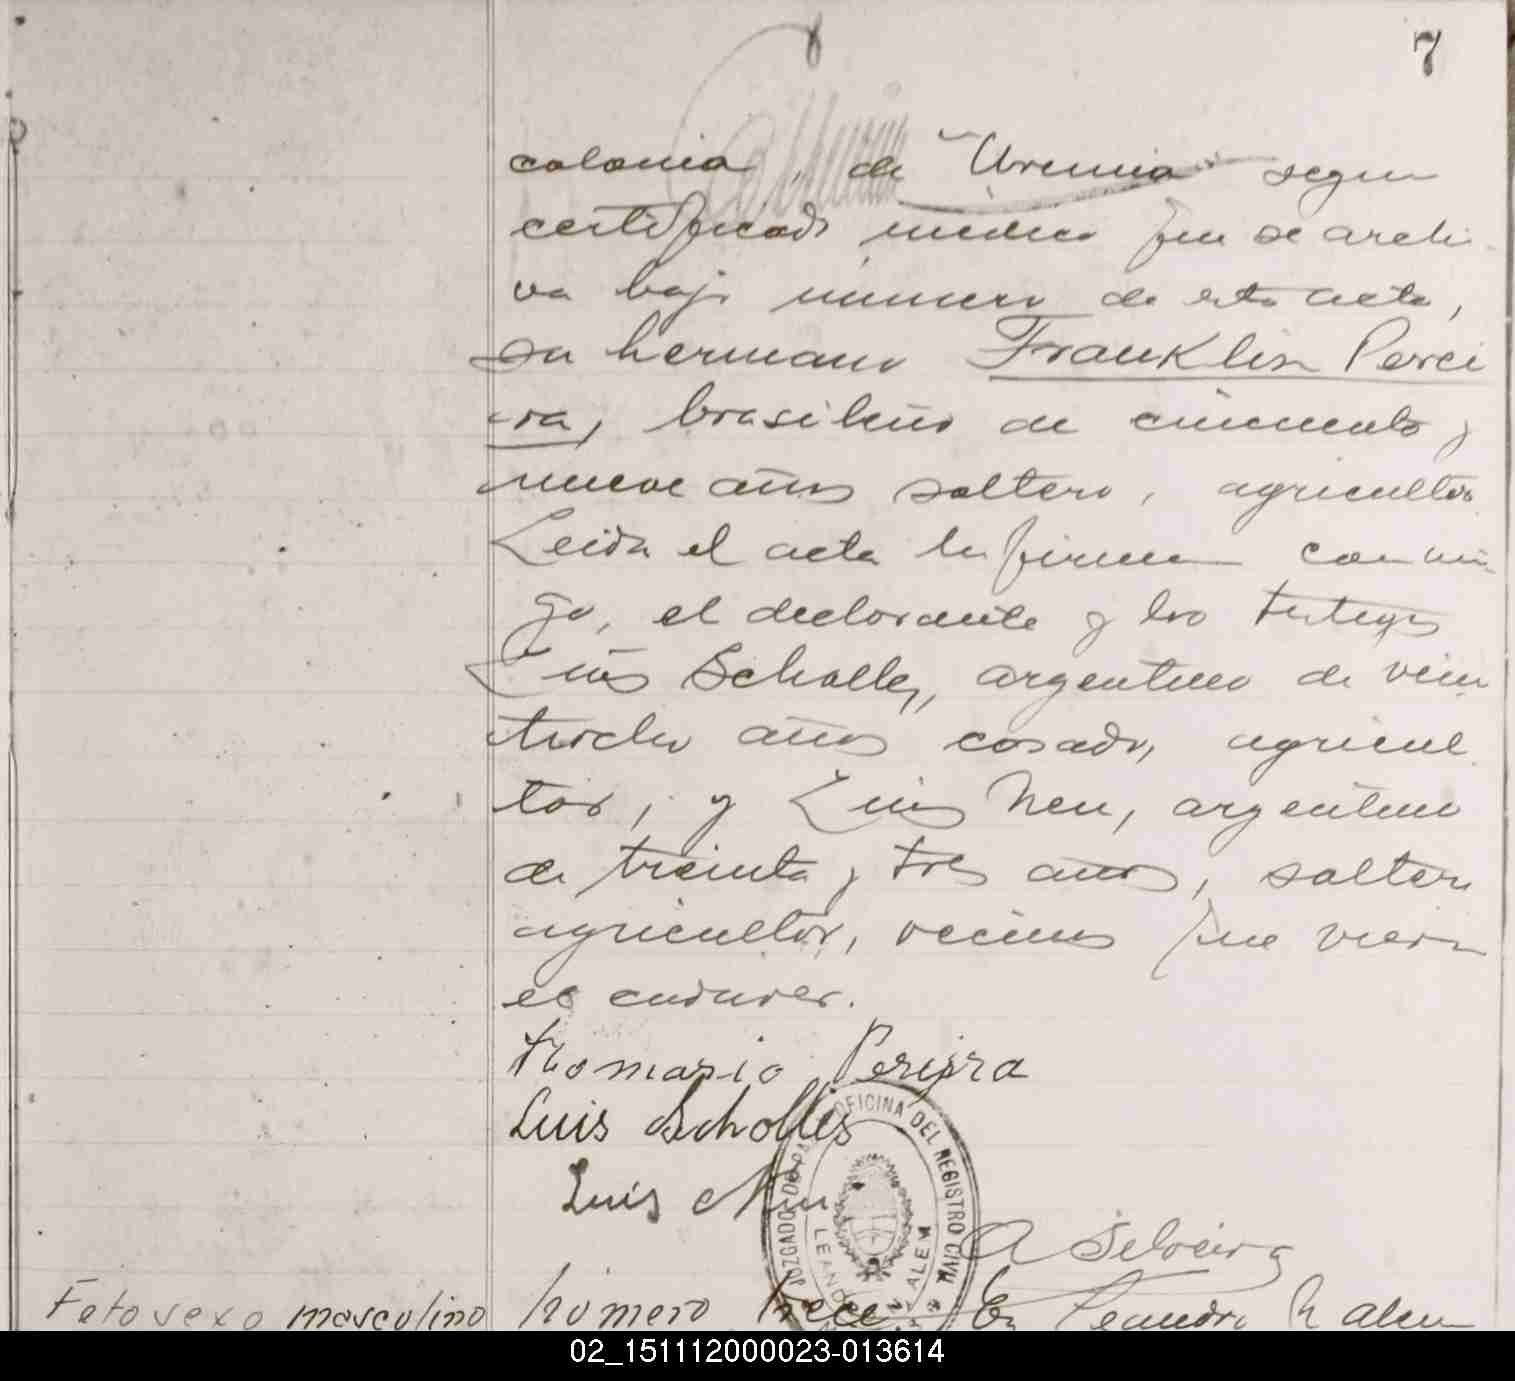 7
colonia, de Uremia segun
certificado medico que se archi
va bajo número de esta acta,
su hermano Franklin Perei
ra, brasileño de cincuenta y
nueve años soltero, agricultor
Leida el acta la firma conmi
go, el declarante y los testigos
Luis Scholles, argentino de vein
tiocho años casado, agricul
tor, y Luis Neu, argentino
de treinta y tres años, soltero
agricultor, vecinos que vieron
el cadaver.
Pereira
Luis Scholles
Luis Neu
OFICINA DEL REGISTRO CIVIL
JUZGADO DE PAZ
LEANDRO N. ALEM
A Silveira
Feto sexo masculino Número trece En Leandro N Alem
02_151112000023-013614